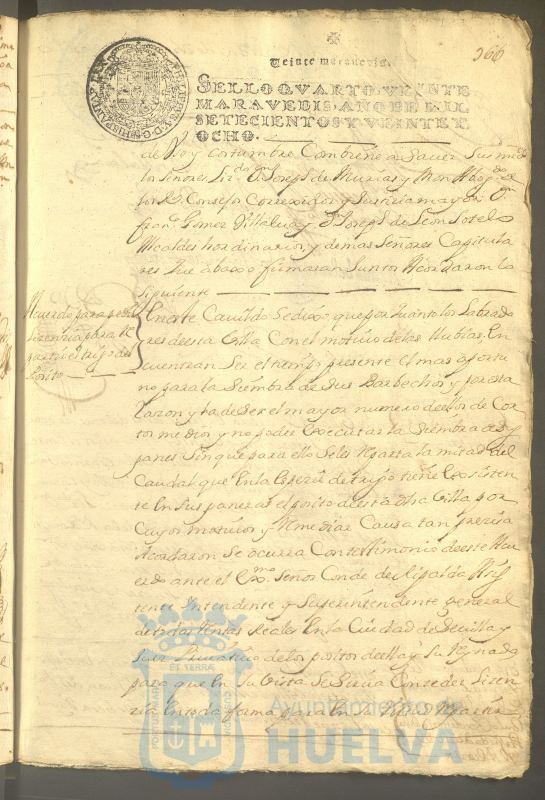 360
Veinte maravedis.
SELLO QVARTO, VEINTE
MARAVEDIS, AÑO DE MIL
SETECIENTOS Y VEINTE Y
OCHO.
de Uso y Costumbre Combiene a Saver Sus
los Señores Lizdo Dn Joseph de Murias y
Consejo Correxidor y Justicia mayor Dn
franco Gomez Villalua y Dn Joseph de Leon Sotelo
Alcaldes hordinarios, y demas Señores Capitula
res que abaxo firmaran Juntos Acordaron lo
siguiente
Acuerdo para pedir
Lizenzia para Re
partir el trigo del
Posito
En este Cavildo Se dixo que por quanto los Labrado
res desta Villa Con el motivo de las llubias, En
cuentran Ser el tiempo presente el mas oportu
no para la Siembra de Sus Barbechos y por esta
razon y ha de Ser el mayor numero dellos de Cor
tos medios y no poder executar la Siembra de
panes Sin que para ello Se les Reparta la mitad del
Caudal que En la Especie de trigo tiene Existen
te En Sus paneras el posito de esta dha Villa por
Cuyos motivos y Remediar Causa tan preciza
Acordaron Se ocurra Con testimonio de este Acu
erdo ante el Exmo Señor Conde de Ripalda Asis
tente Intendente y Superintendente general
de todas Rentas Reales En la Ciudad de Sevilla y
Juez Privativo de los positos della y Su Reynado
para que En Su Vista Se Sirva Conceder Lizen
zia En toda forma para
PORTUS MARIS
ET TERRAE
CUSTODIA
Ayuntamiento de
HUELVA